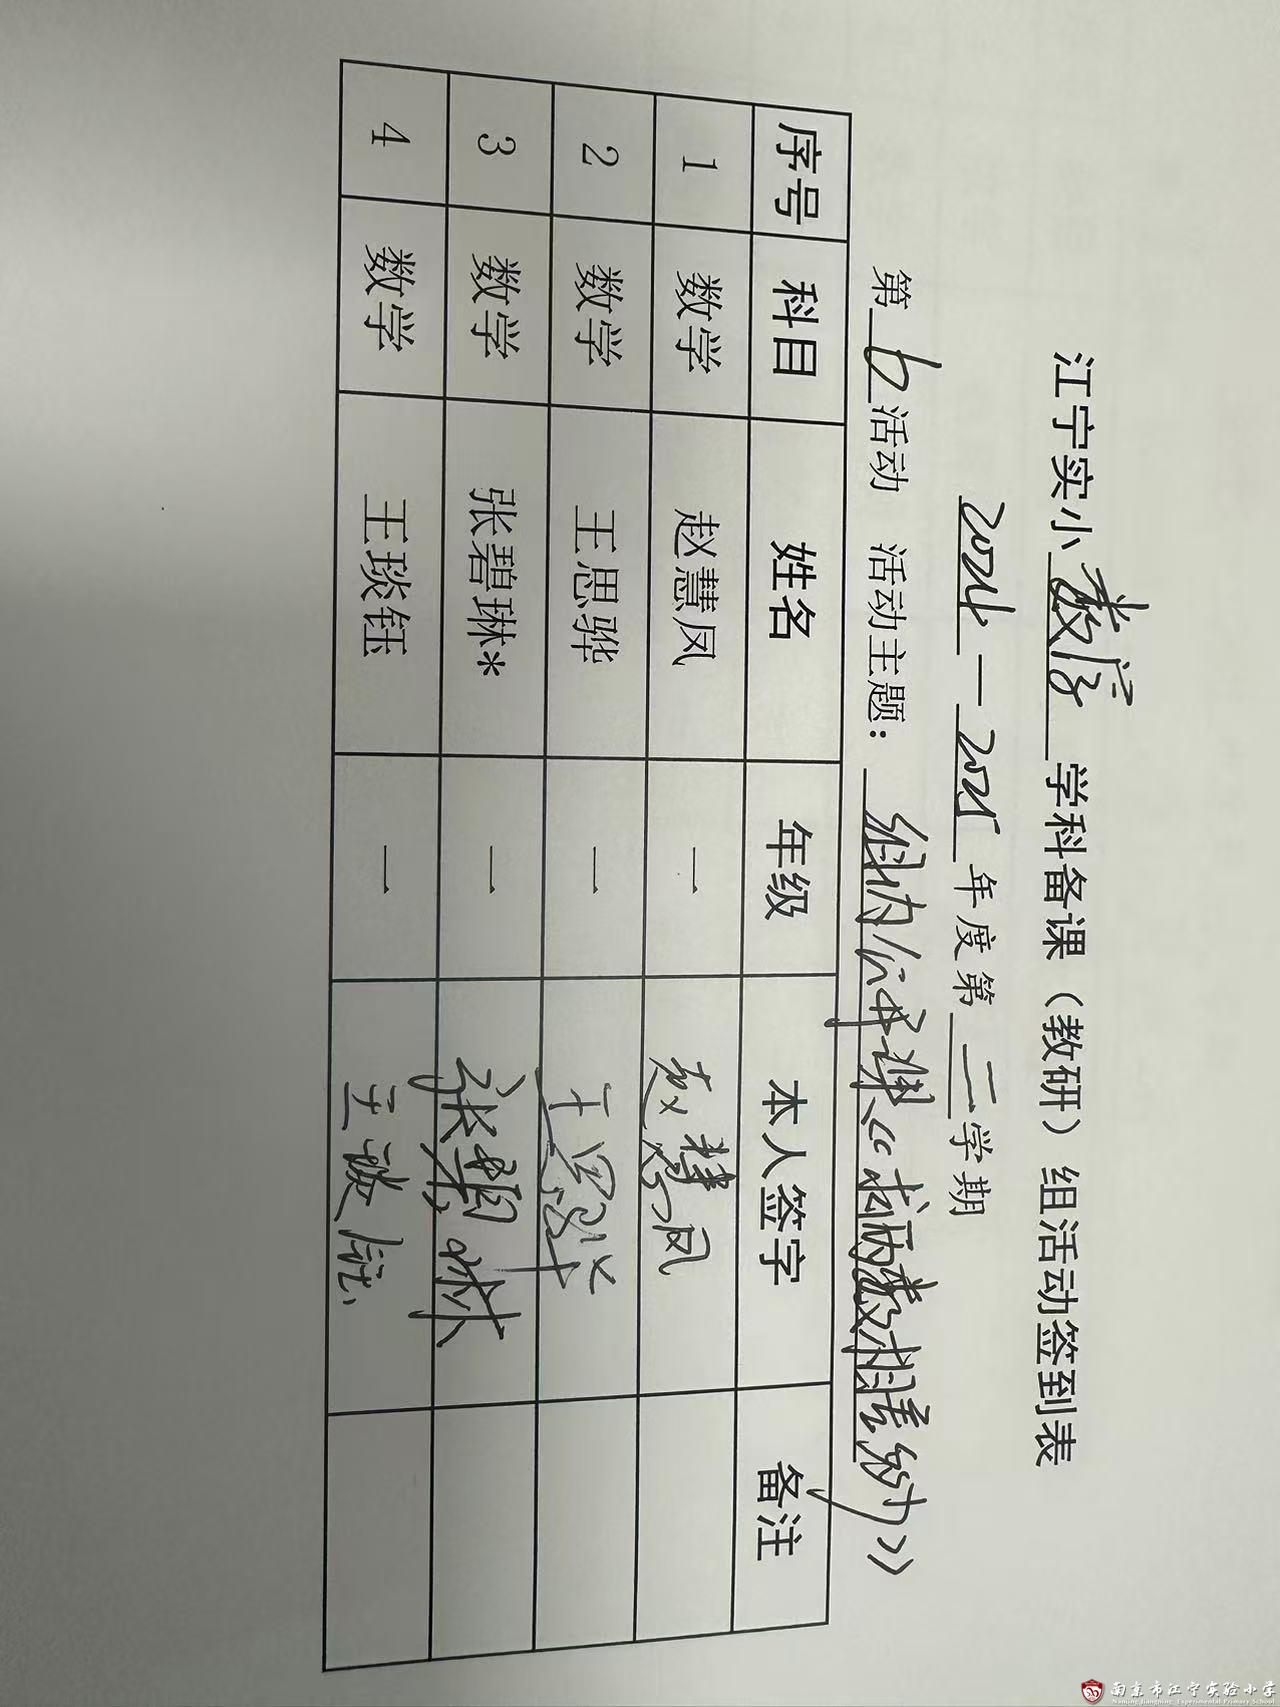 江宁实小 数学 学科备课（教研）组活动签到表
2024—2025年度第二学期
第6活动 活动主题：组内公开课《求两数相差多少》
序号 科目 姓名 年级 本人签字 备注
1 数学 赵慧凤 一 赵慧凤
2 数学 王思骅 一 王思骅
3 数学 张碧琳* 一 张碧琳
4 数学 王琰钰 一 王琰钰
南京市江宁实验小学
Nanjing Jiangning Experimental Primary School